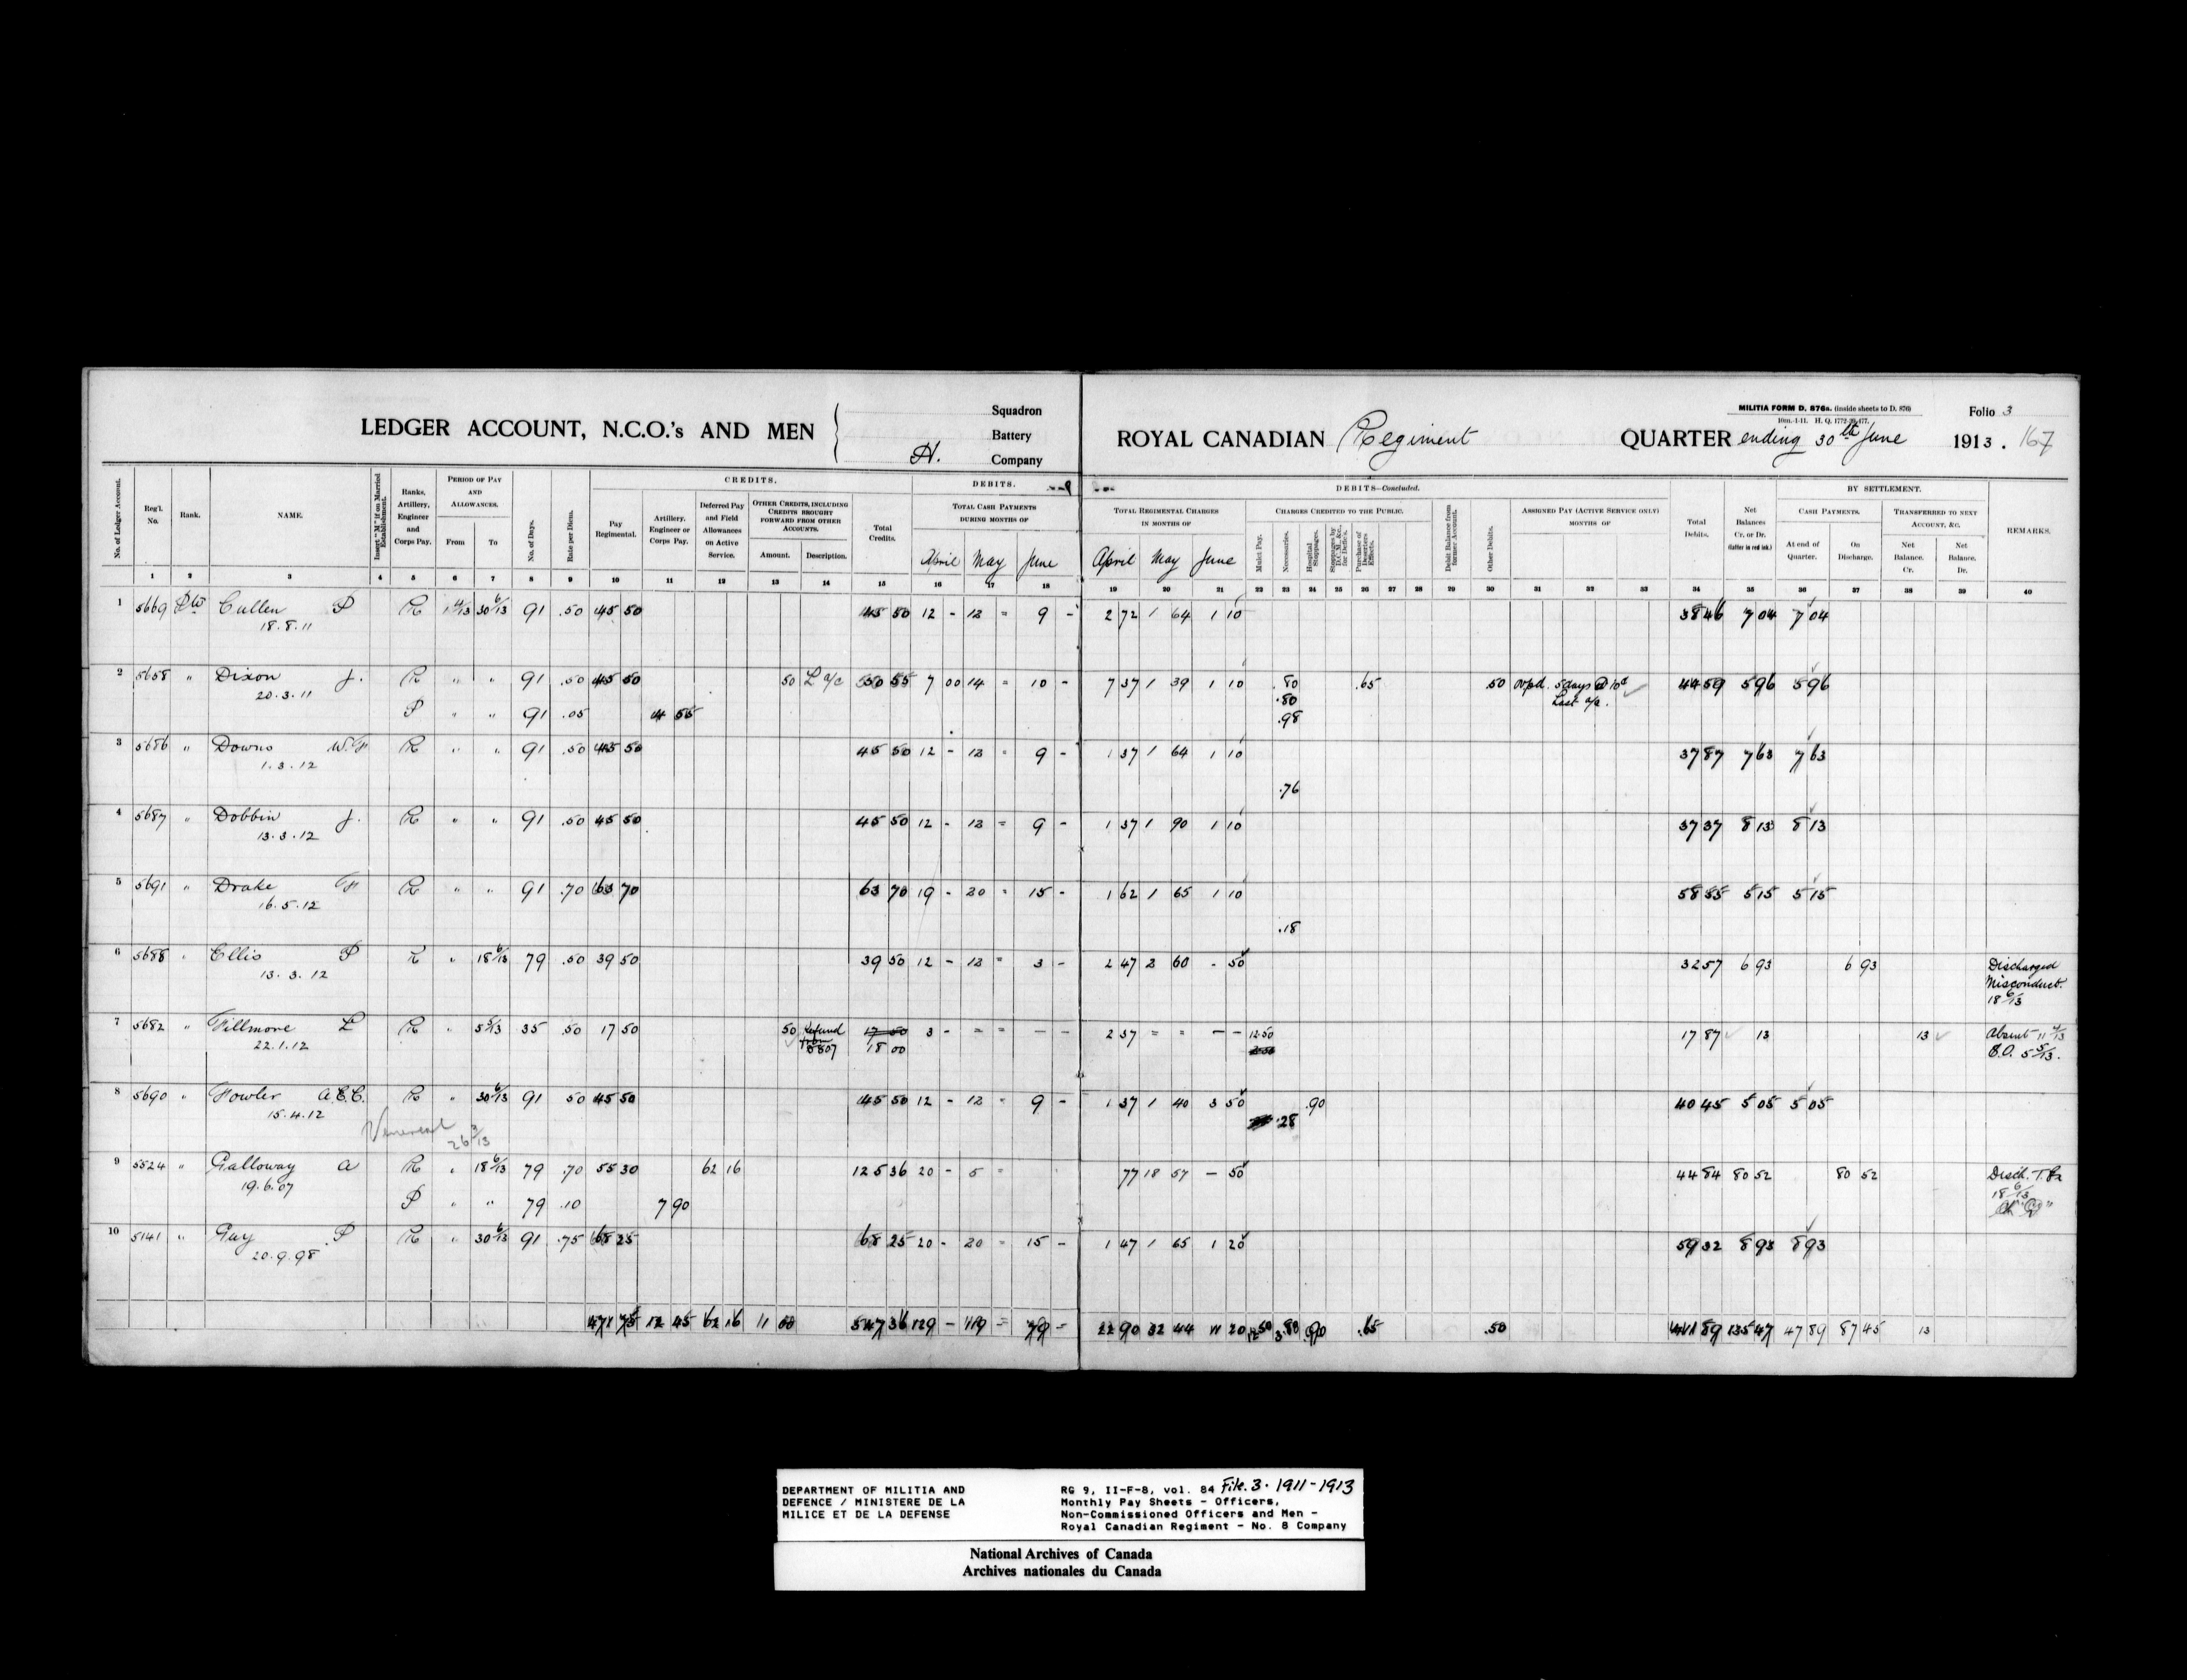 MILITIA FORM D. 876a. (inside sheets to D. 876)
10m.-1-11. H. Q. 1772-39-477.
Folio 3
LEDGER ACCOUNT, N.C.O.'s AND MEN
Squadron
Battery
H. Company
ROYAL CANADIAN Regiment QUARTER ending 30th June 1913. 167
CREDITS. DEBITS. DEBITS—Concluded. BY SETTLEMENT.
No. of Ledger Account. Reg'l. No. Rank. NAME. Insert "M" if on Married Establishment. Ranks, Artillery, Engineer and Corps Pay. PERIOD OF PAY AND ALLOWANCES. From To No. of Days. Rate per Diem. Pay Regimental. Artillery, Engineer or Corps Pay. Deferred Pay and Field Allowances on Active Service. OTHER CREDITS, INCLUDING CREDITS BROUGHT FORWARD FROM OTHER ACCOUNTS. Amount. Description. Total Credits. TOTAL CASH PAYMENTS DURING MONTHS OF April May June
TOTAL REGIMENTAL CHARGES IN MONTHS OF April May June CHARGES CREDITED TO THE PUBLIC. Mulct Pay. Necessaries. Hospital Stoppages. Stoppages by D.C.M., &c., for Defic's. Purchase of Deserters Effects. Debit Balance from former Account. Other Debits. ASSIGNED PAY (ACTIVE SERVICE ONLY) MONTHS OF Total Debits. Net Balances Cr. or Dr. (latter in red ink.) CASH PAYMENTS. At end of Quarter. On Discharge. TRANSFERRED TO NEXT ACCOUNT, &C. Net Balance. Cr. Net Balance. Dr. REMARKS.
1 2 3 4 5 6 7 8 9 10 11 12 13 14 15 16 17 18 19 20 21 22 23 24 25 26 27 28 29 30 31 32 33 34 35 36 37 38 39 40
1 5669 Pte Cullen P R 1 4/13 30 6/13 91 .50 45 50 45 50 12 - 12 = 9 - 2 72 1 64 1 10 38 46 7 04 7 04
18.8.11
2 5658 " Dixon J. R " " 91 .50 45 50 50 L a/c 50 55 7 00 14 = 10 - 7 37 1 39 1 10 .80 .65 .50 ovpd. 5 days @ 10c 44 59 5 96 5 96
20.3.11 .80 Last a/c.
P " " 91 .05 4 55 .98
3 5686 " Downs W.F R " " 91 .50 45 50 45 50 12 - 12 = 9 - 1 37 1 64 1 10 37 87 7 63 7 63
1.3.12
.76
4 5687 " Dobbin J. R " " 91 .50 45 50 45 50 12 - 12 = 9 - 1 37 1 90 1 10 37 37 8 13 8 13
13.3.12
5 5691 " Drake F R " " 91 .70 63 70 63 70 19 - 20 = 15 - 1 62 1 65 1 10 58 55 5 15 5 15
16.5.12
.18
6 5688 " Ellis P R " 18 6/13 79 .50 39 50 39 50 12 - 12 = 3 - 2 47 2 60 - 50 32 57 6 93 6 93 Discharged
13.3.12 Misconduct.
18 6/13
7 5682 " Fillmore L R " 5 5/13 35 .50 17 50 50 Refund 17 50 3 - = = - - 2 37 = = - - 12.50 17 87 13 13 Absent 11 4/13
22.1.12 from 5807 18 00 B.O. 5 5/13.
8 5690 " Fowler A.E.C. R " 30 6/13 91 50 45 50 45 50 12 - 12 = 9 - 1 37 1 40 3 50 .90 40 45 5 05 5 05
15.4.12 .28
Venereal 26 3/13
9 5524 " Galloway A R " 18 6/13 79 .70 55 30 62 16 125 36 20 - 5 = 77 18 57 - 50 44 84 80 52 80 52 Disch. T.Ex
19.6.07 18 6/13
P " " 79 .10 7 90
10 5141 " Guy P R " 30 6/13 91 .75 68 25 68 25 20 - 20 = 15 - 1 47 1 65 1 20 59 32 8 93 8 93
20.9.98
471 75 12 45 62 16 1 00 547 36 129 - 119 = 79 - 22 90 32 44 11 20 12 50 3.80 .90 .65 .50 441 89 135 47 47 89 87 45 13
DEPARTMENT OF MILITIA AND
DEFENCE / MINISTERE DE LA
MILICE ET DE LA DEFENSE
RG 9, II-F-8, vol. 84 File. 3. 1911-1913
Monthly Pay Sheets - Officers,
Non-Commissioned Officers and Men -
Royal Canadian Regiment - No. 8 Company
National Archives of Canada
Archives nationales du Canada